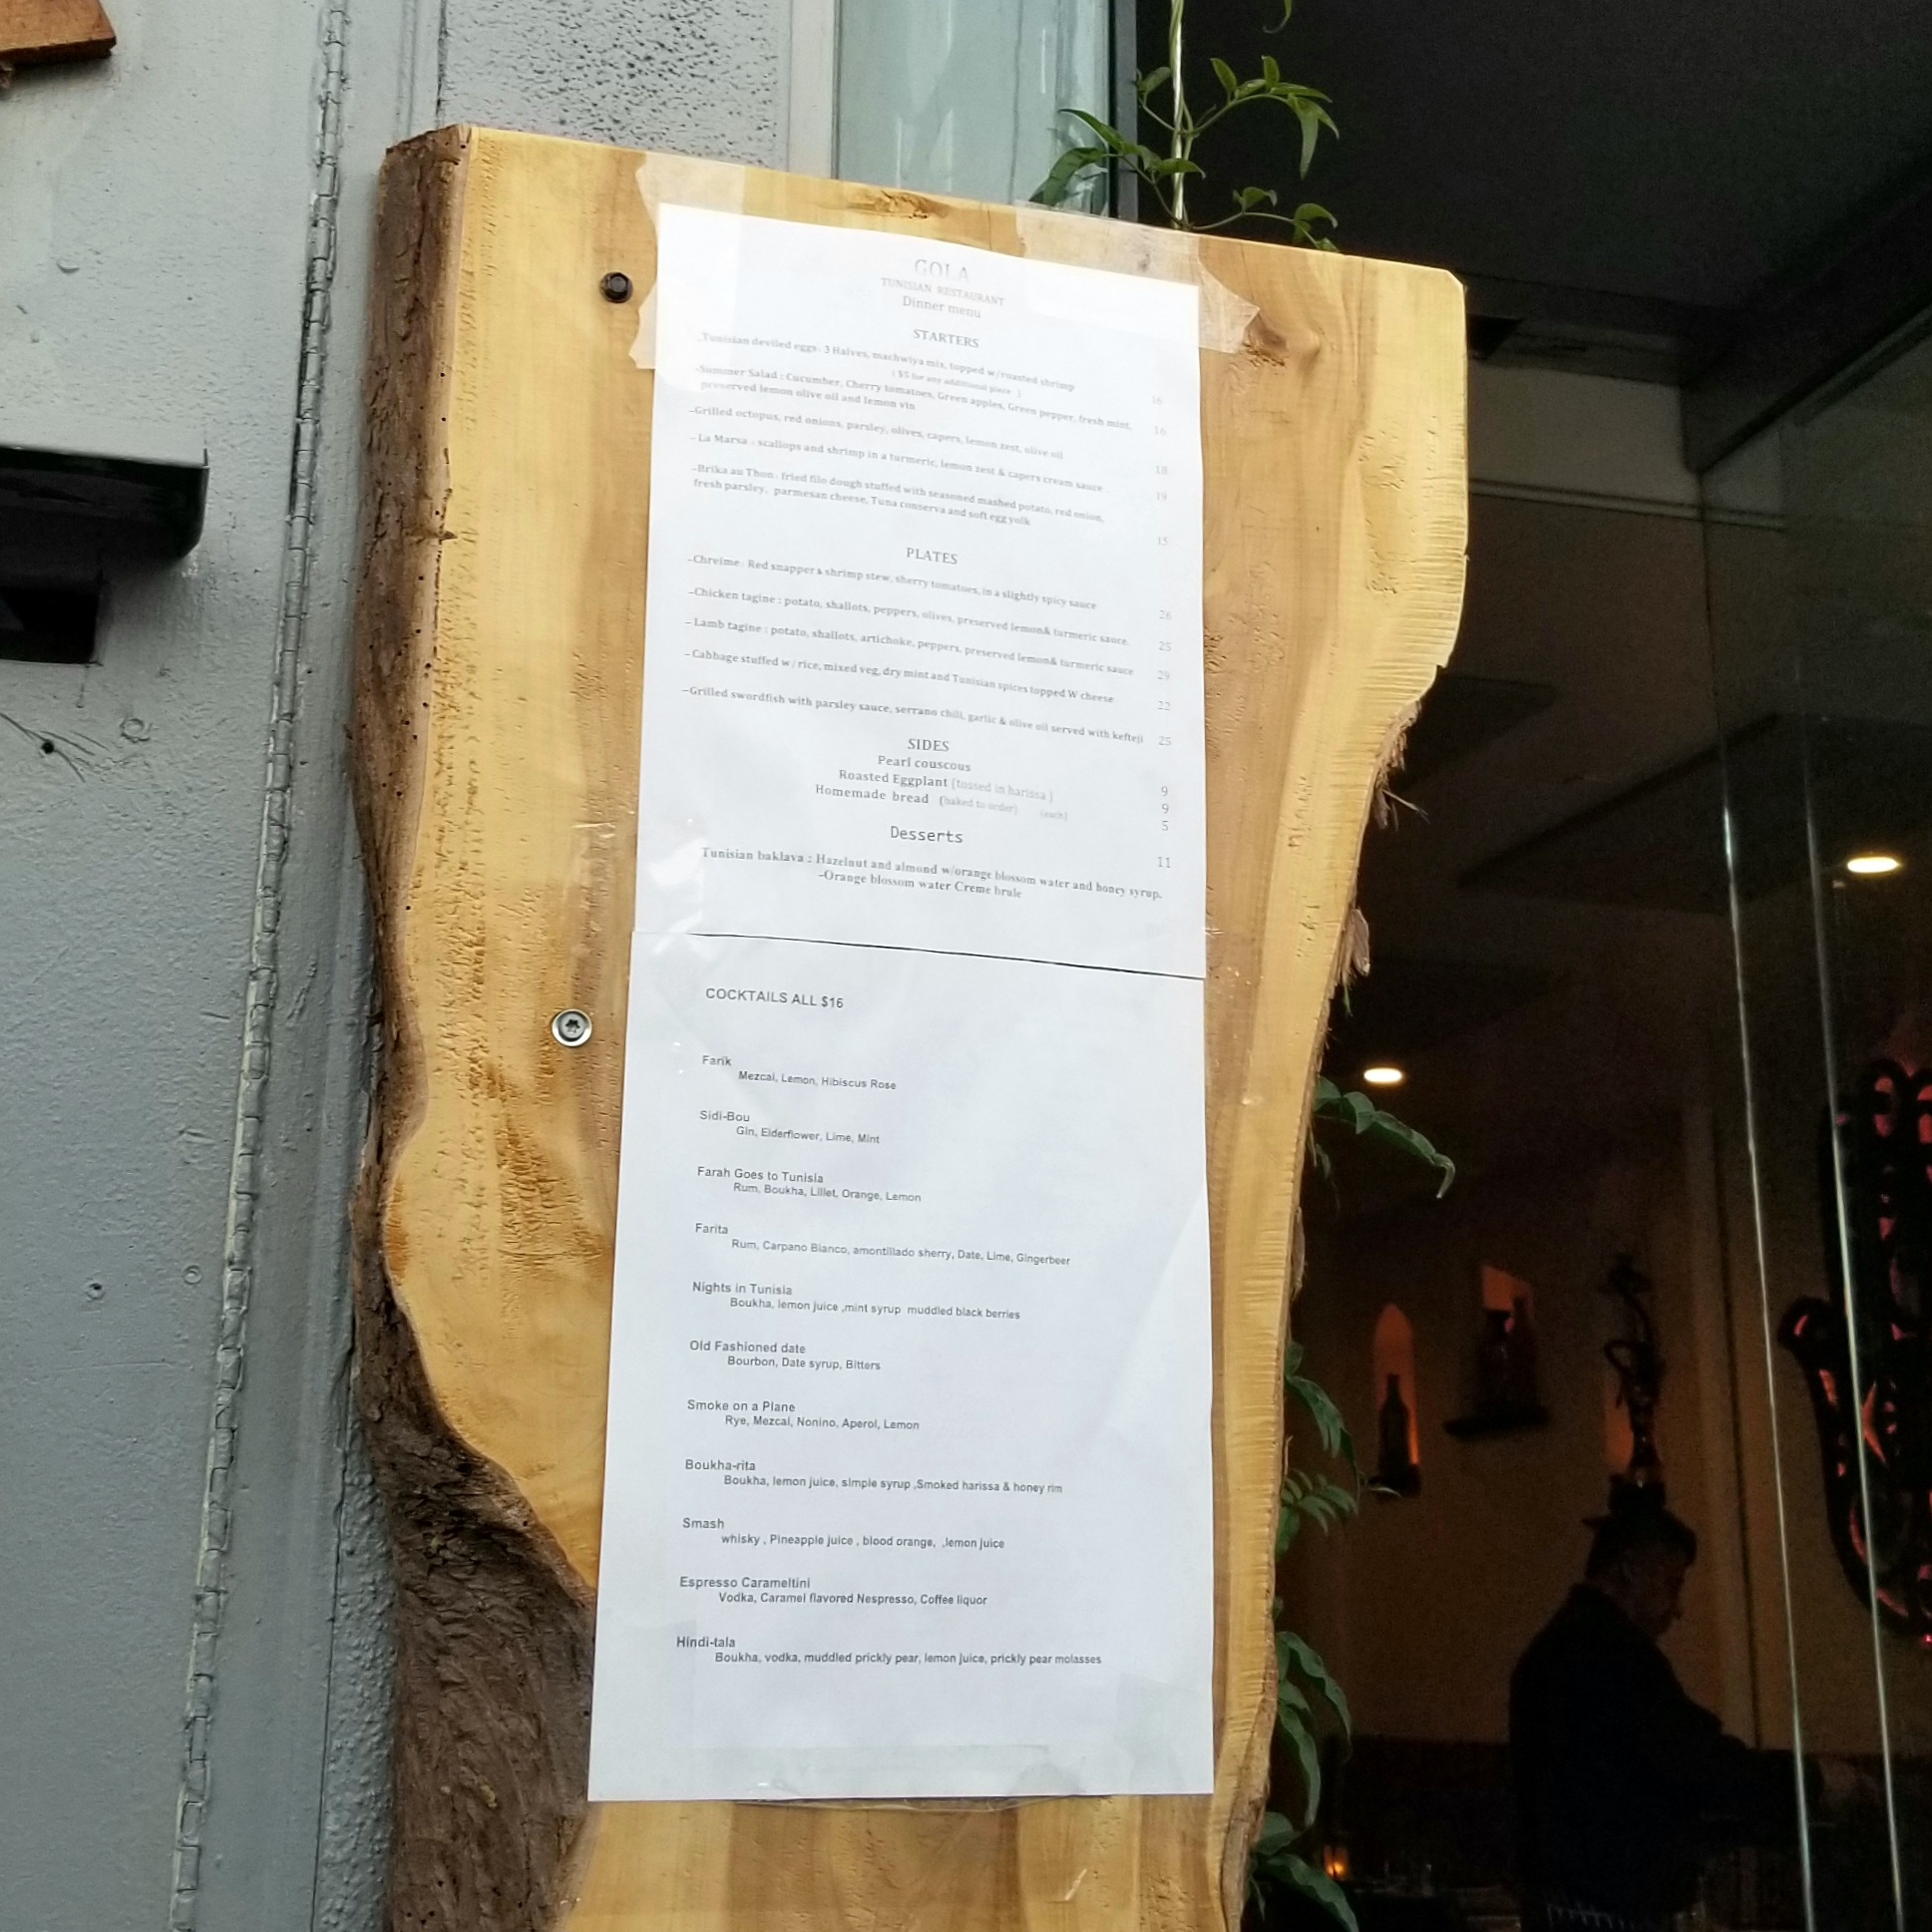 GOLA
TUNISIAN RESTAURANT
Dinner menu
STARTERS
-Tunisian deviled eggs : 3 Halves, machwiya mix, topped w/roasted shrimp
( $5 for any additional piece ) 16
-Summer Salad : Cucumber, Cherry tomatoes, Green apples, Green pepper, fresh mint,
preserved lemon olive oil and lemon vin 16
-Grilled octopus, red onions, parsley, olives, capers, lemon zest, olive oil 18
- La Marsa : scallops and shrimp in a turmeric, lemon zest & capers cream sauce . 19
-Brika au Thon : fried filo dough stuffed with seasoned mashed potato, red onion,
fresh parsley, parmesan cheese, Tuna conserva and soft egg yolk 15
PLATES
-Chreime : Red snapper & shrimp stew, sherry tomatoes, in a slightly spicy sauce 26
-Chicken tagine : potato, shallots, peppers, olives, preserved lemon& turmeric sauce. 25
- Lamb tagine : potato, shallots, artichoke, peppers, preserved lemon& turmeric sauce 29
-Cabbage stuffed w / rice, mixed veg, dry mint and Tunisian spices topped W cheese 22
-Grilled swordfish with parsley sauce, serrano chili, garlic & olive oil served with kefteji 25
SIDES
Pearl couscous 9
Roasted Eggplant (tossed in harissa ) 9
Homemade bread (baked to order) (each) 5
Desserts 11
Tunisian baklava : Hazelnut and almond w/orange blossom water and honey syrup.
-Orange blossom water Creme brule
COCKTAILS ALL $16
Farik
Mezcal, Lemon, Hibiscus Rose
Sidi-Bou
Gin, Elderflower, Lime, Mint
Farah Goes to Tunisia
Rum, Boukha, Lillet, Orange, Lemon
Farita
Rum, Carpano Bianco, amontillado sherry, Date, Lime, Gingerbeer
Nights in Tunisia
Boukha, lemon juice ,mint syrup muddled black berries
Old Fashioned date
Bourbon, Date syrup, Bitters
Smoke on a Plane
Rye, Mezcal, Nonino, Aperol, Lemon
Boukha-rita
Boukha, lemon juice, simple syrup ,Smoked harissa & honey rim
Smash
whisky , Pineapple juice , blood orange, ,lemon juice
Espresso Carameltini
Vodka, Caramel flavored Nespresso, Coffee liquor
Hindi-tala
Boukha, vodka, muddled prickly pear, lemon juice, prickly pear molasses